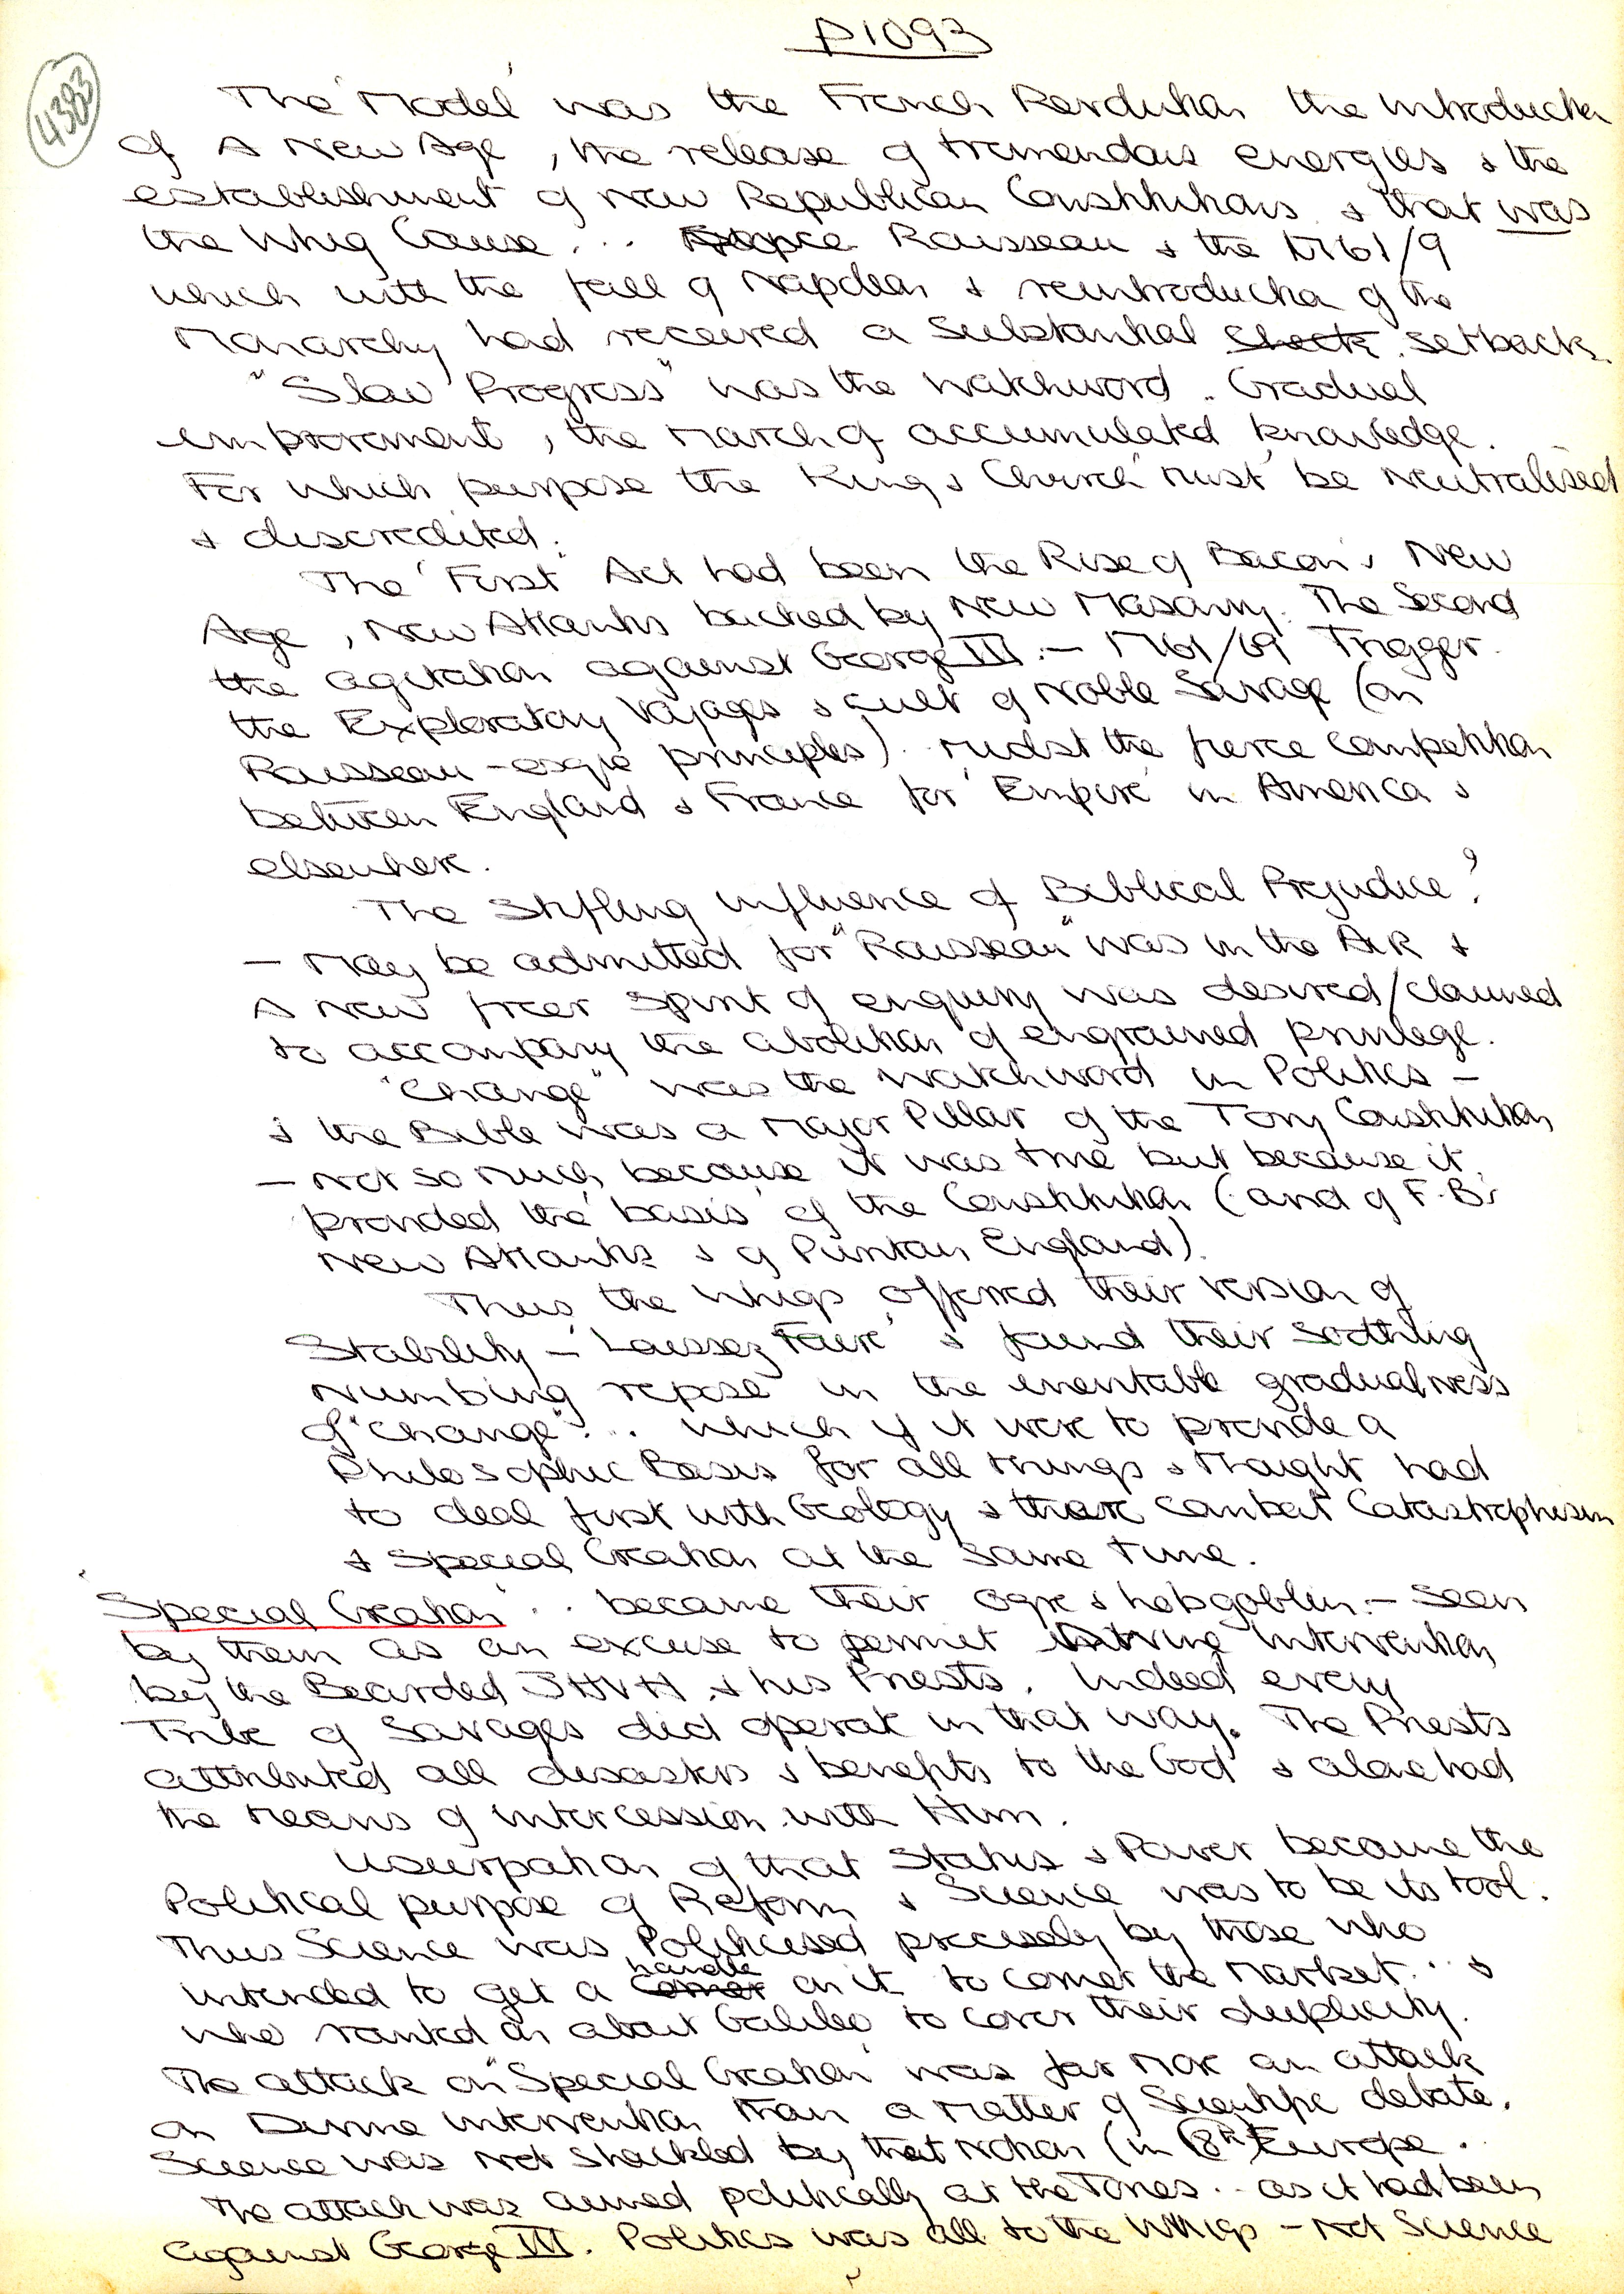 P1093
4383
The 'Model' was the French Revolution the introduction
of A New Age, the release of tremendous energies & the
establishment of new Republican Constitutions & that was
the Whig Cause... Rousseau & the 1761/9
which with the fall of Napoleon & reintroduction of the
Monarchy had received a substantial check setback.
"Slow Progress" was the watchword. Gradual
improvement, the march of accumulated knowledge.
For which purpose the King & Church must be Neutralised
& discredited.
The 'First' Act had been the Rise of Bacon's New
Age, New Atlantis backed by New Masonry. The Second
the agitation against George III. – 1761/69 Trigger.
the Exploratory Voyages & cult of Noble Savage (on
Rousseau-esque principles). Midst the fierce competition
between England & France for 'Empire' in America &
elsewhere.
The Stifling influence of Biblical Prejudice?
– May be admitted for "Rousseau" was in the AIR &
A new freer spirit of enquiry was desired/claimed
to accompany the abolition of engrained privilege.
"Change" was the watchword in Politics –
& the Bible was a Major Pillar of the Tory Constitution
– Not so much because it was true but because it
provided the 'basis' of the Constitution (and of F.B's
New Atlantis & of Puritan England).
Thus the Whigs offered their version of
Stability – 'Laissez Faire' & found their soothing
numbing repose in the inevitable gradualness
of "change"... which if it were to provide a
Philosophic Basis for all things & thought had
to deal first with Geology & there combat Catastrophism
& Special Creation at the same time.
'Special Creation'.. became their ogre & hobgoblin. – seen
by them as an excuse to permit Divine Intervention
by the Bearded JHVH & his Priests. Indeed every
Tribe of Savages did operate in that way. The Priests
attributed all disasters & benefits to the God & alone had
the means of intercession with Him.
Usurpation of that Status & Power became the
Political purpose of Reform & Science was to be its tool.
Thus Science was Politicised precisely by those who
intended to get a corner handle on it to corner the Market.. &
who ranted on about Galileo to cover their duplicity.
The attack on "Special Creation" was far more an attack
on Divine intervention than a matter of Scientific debate.
Science was not shackled by that notion (in Europe.
The attack was aimed politically at the Tories.. as it had been
against George III. Politics was all to the Whigs – Not Science